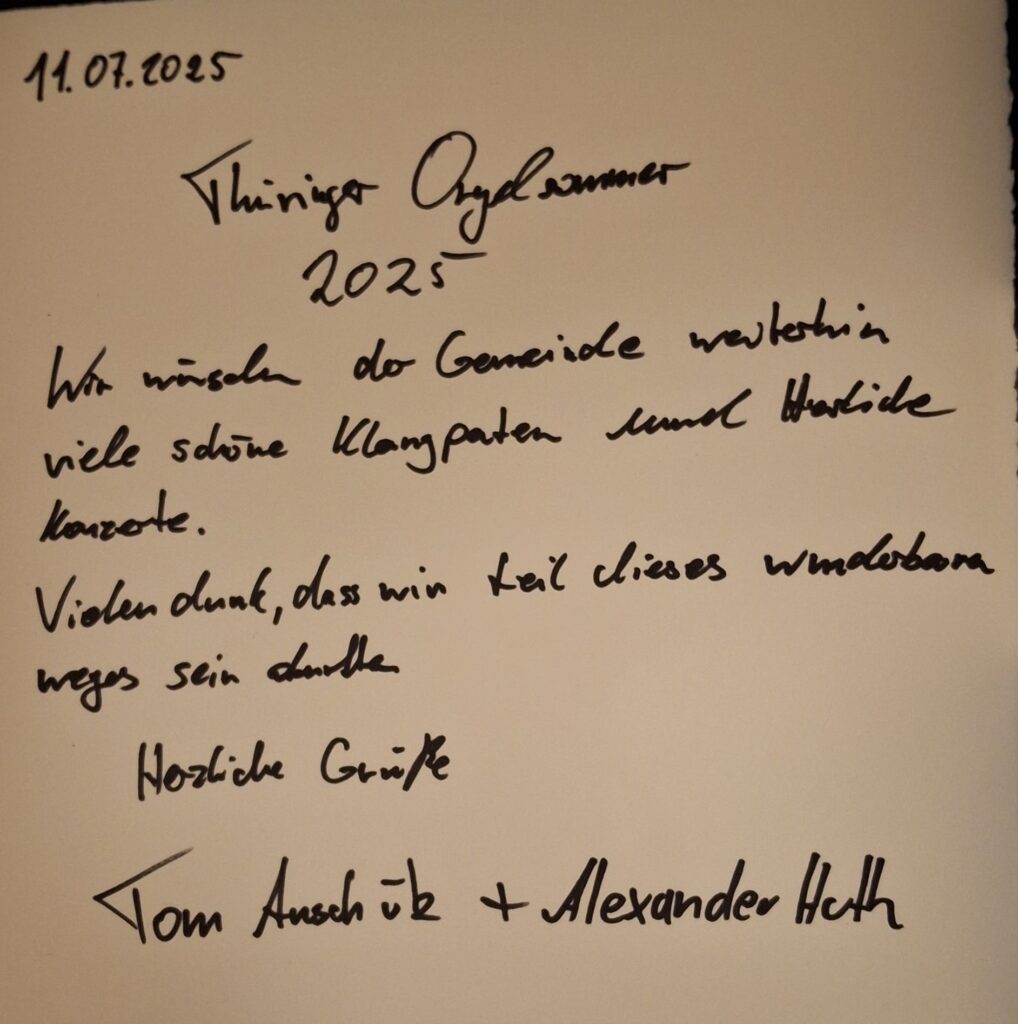 11.07.2025
Thüringer Orgelsommer
2025
Wir wünschen der Gemeinde weiterhin
viele schöne Klangpaten und Herzliche
Konzerte.
Vielen dank, dass wir teil dieses wunderbaren
weges sein durften
Herzliche Grüße
Tom Anschütz + Alexander Huth